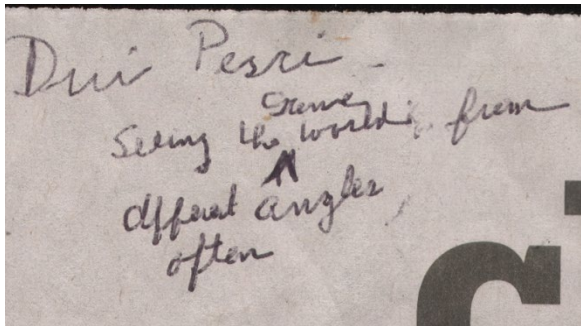 Dui Pesri -
Seeing the same world, from
different angles,
often